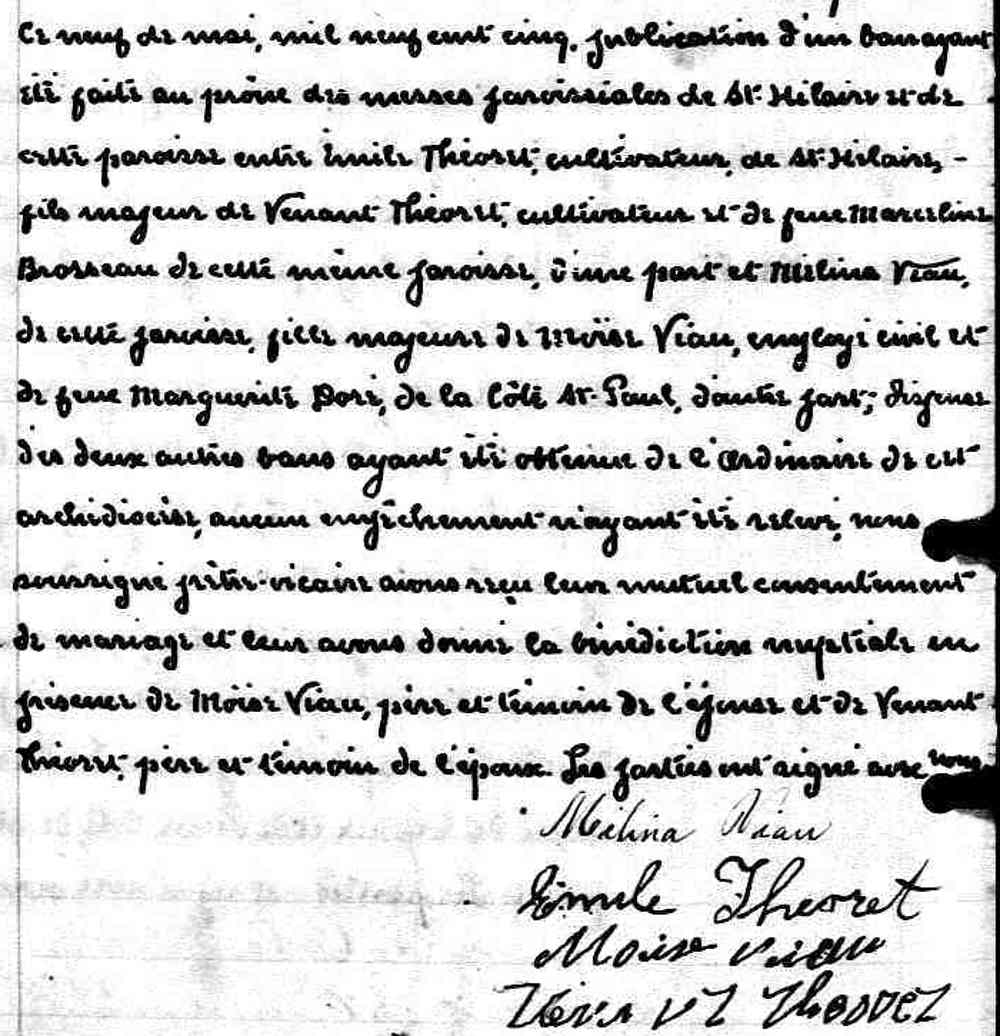 Ce neuf de mai, mil neuf cent cinq, publication d'un ban ayant
été faite au prône des messes paroissiales de St-Hilaire et de
cette paroisse entre Emile Théoret, cultivateur, de St-Hilaire, -
fils majeur de Venant Théoret, cultivateur et de feue Marceline
Brosseau de cette même paroisse, d'une part et Mélina Viau,
de cette paroisse, fille majeure de Moïse Viau, employé civil et
de feue Marguerite Doré, de la Côte St-Paul, d'autre part; dispense
des deux autres bans ayant été obtenue de l'Ordinaire de cet
archidiocèse, aucun empêchement n'ayant été relevé, nous
soussigné prêtre-vicaire avons reçu leur mutuel consentement
de mariage et leur avons donné la bénédiction nuptiale en
présence de Moïse Viau, père et témoin de l'épouse et de Venant
Théoret, père et témoin de l'époux. Les parties ont signé avec nous.
Mélina Viau
Emile Theoret
Moise Viau
Theoret